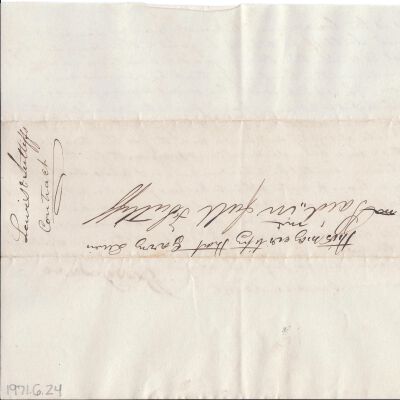 Lewis & Sutliffs
Contract
This may certify that Garry Lewis
me
Paid in full Sutliff
1971.6.24